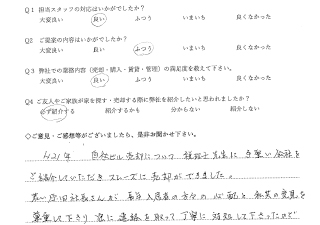 Q1 担当スタッフの対応はいかがでしたか？
大変良い 良い ふつう いまいち 良くなかった
Q2 ご提案の内容はいかがでしたか？
大変良い 良い ふつう いまいち 良くなかった
Q3 弊社での業務内容（売却・購入・賃貸・管理）の満足度を教えて下さい。
大変良い 良い ふつう いまいち 良くなかった
Q4 ご友人やご家族が家を買う・売却する際に弊社を紹介したいと思われましたか？
必ず紹介する 紹介するかも 分からない 紹介しない
◇ご意見・ご感想等がございましたら、是非お聞かせ下さい。
自社ビル売却について 税理士先生に 手堅い会社を
ご紹介していただき スムーズに 売却ができました。
社長さんが 入居者の方々の 心配と 私共の意見を
尊重して下さり 密に 連絡を取って 丁寧に 対処して下さったので